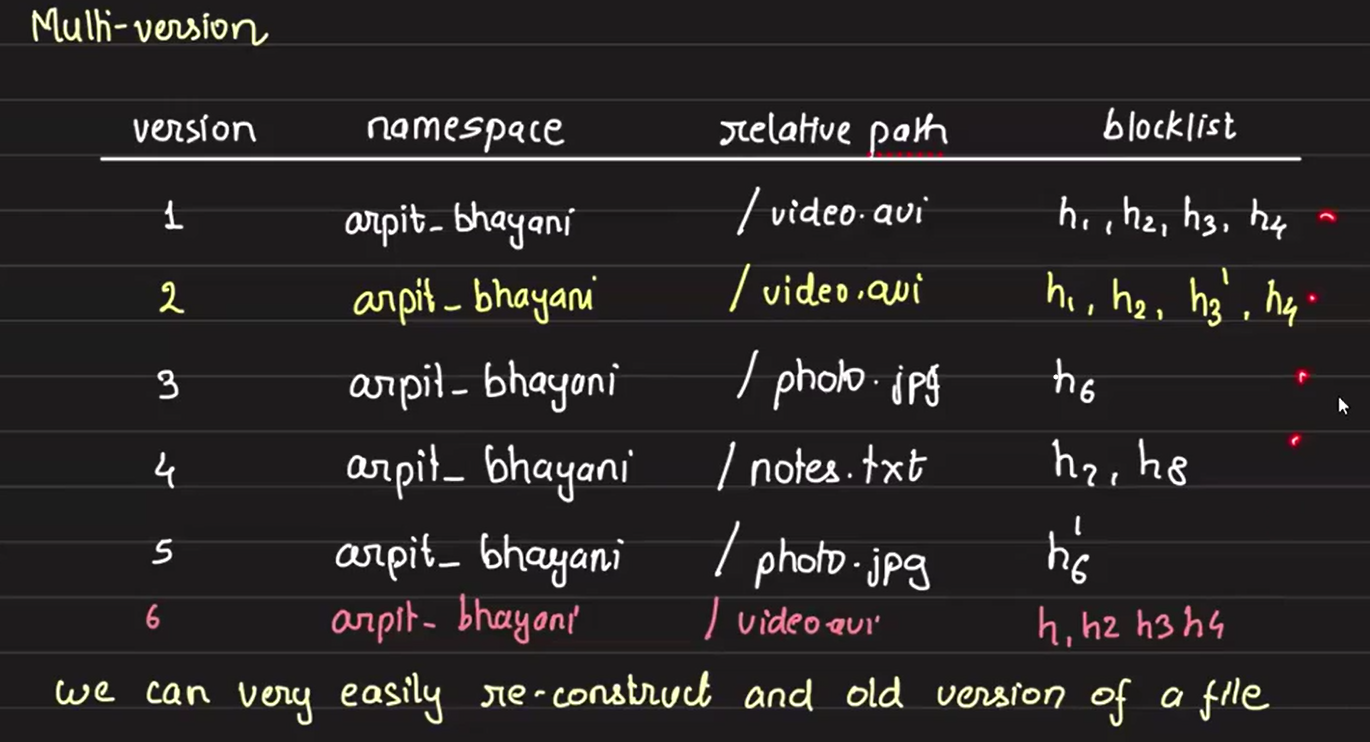 Multi-version
version namespace relative path blocklist
1 arpit_bhayani /video.avi h₁, h₂, h₃, h₄
2 arpit_bhayani /video.avi h₁, h₂, h₃', h₄
3 arpit_bhayani /photo.jpg h₆
4 arpit_bhayani /notes.txt h₇, h₈
5 arpit_bhayani /photo.jpg h₆'
6 arpit_bhayani /video.avi h₁ h2 h3 h4
we can very easily re-construct and old version of a file